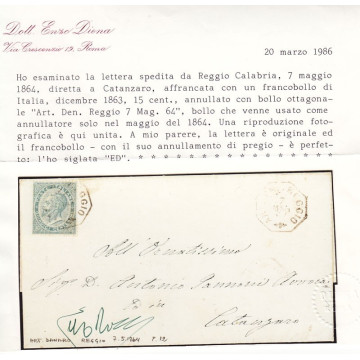 Dott. Enzo Diena
Via Crescenzio 19, Roma
20 marzo 1986
Ho esaminato la lettera spedita da Reggio Calabria, 7 maggio
1864, diretta a Catanzaro, affrancata con un francobollo di
Italia, dicembre 1863, 15 cent., annullato con bollo ottagona-
le "Art. Den. Reggio 7 Mag. 64", bollo che venne usato come
annullatore solo nel maggio del 1864. Una riproduzione foto-
grafica è qui unita. A mio parere, la lettera è originale ed
il francobollo - con il suo annullamento di pregio - è perfet-
to: l'ho siglata "ED". * * * * * * * * * * * * * * * * * * *
All'Ornatissimo
Sig. D. Antonio
Catanzaro
REGGIO 7.5.1864 P. 12